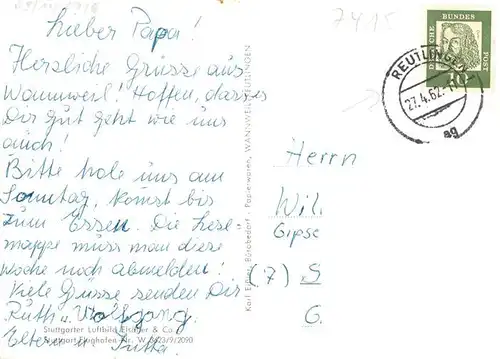 7415
Lieber Papa!
Herzliche Grüsse aus
Wannweil! Hoffen, dass es
Dir gut geht wie uns
auch!
Bitte hole uns am
Sonntag, kommst bis
zum Essen. Die Lese-
mappe muss man diese
Woche noch abmelden!
Viele Grüsse senden Dir
Ruth u. Wolfgang.
Eltern u. Jutta
Stuttgarter Luftbild Elsäßer & Co.
Stuttgart Flughafen Nr. W 3623/9/2090
Karl Eißler, Bürobedarf - Papierwaren, WANNWEIL/REUTLINGEN
DEUTSCHE BUNDESPOST
10
REUTLINGEN
27.4.62
ag
Herrn
Wil.
Gipse
(7) S
G.